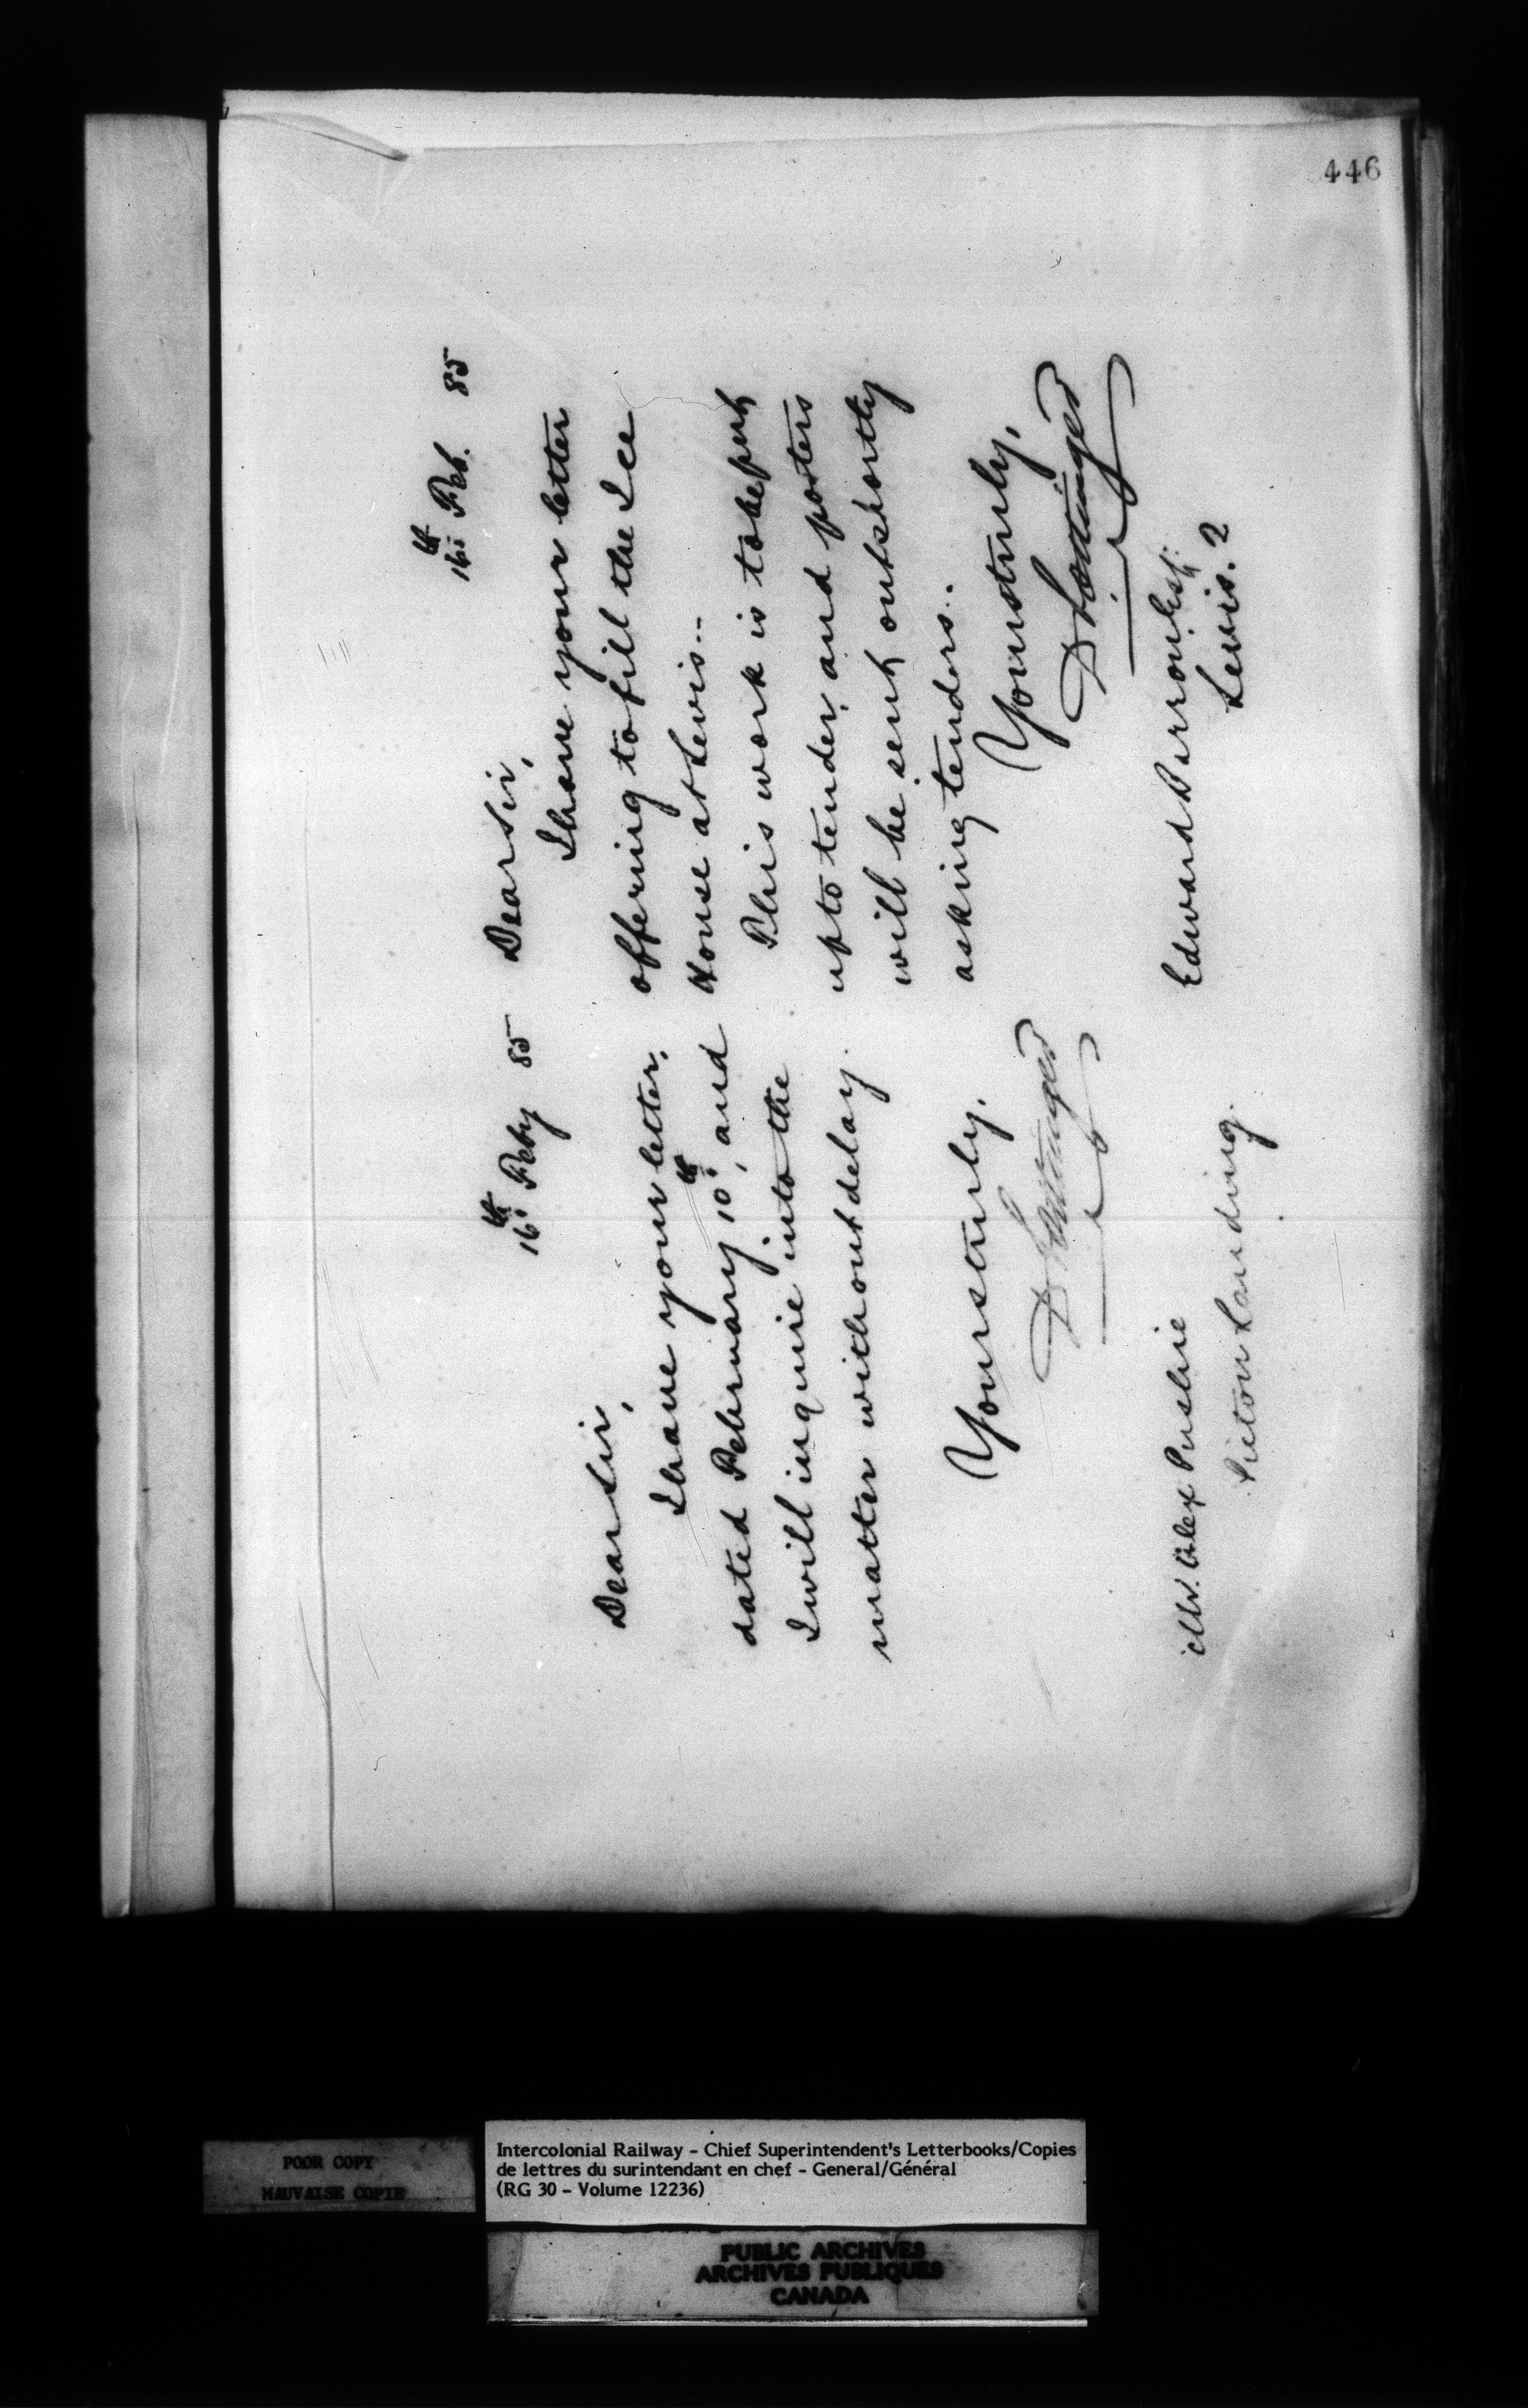 446
16th Feby 85
Dear Sir,
I have your letter,
dated February 10th, and
I will inquire into the
matter without delay.
Yours truly,
D Pottinger
Mr. Alex
Pictou Landing.
16th Feb. 85
Dear Sir,
I have your letter
offering to fill the Ice
House at Levis..
This work is to be put
up to tender, and posters
will be sent out shortly
asking tenders..
Yours truly,
D Pottinger
Edward
Levis. 2
POOR COPY
MAUVAISE COPIE
Intercolonial Railway - Chief Superintendent's Letterbooks/Copies
de lettres du surintendant en chef - General/Général
(RG 30 - Volume 12236)
PUBLIC ARCHIVES
ARCHIVES PUBLIQUES
CANADA